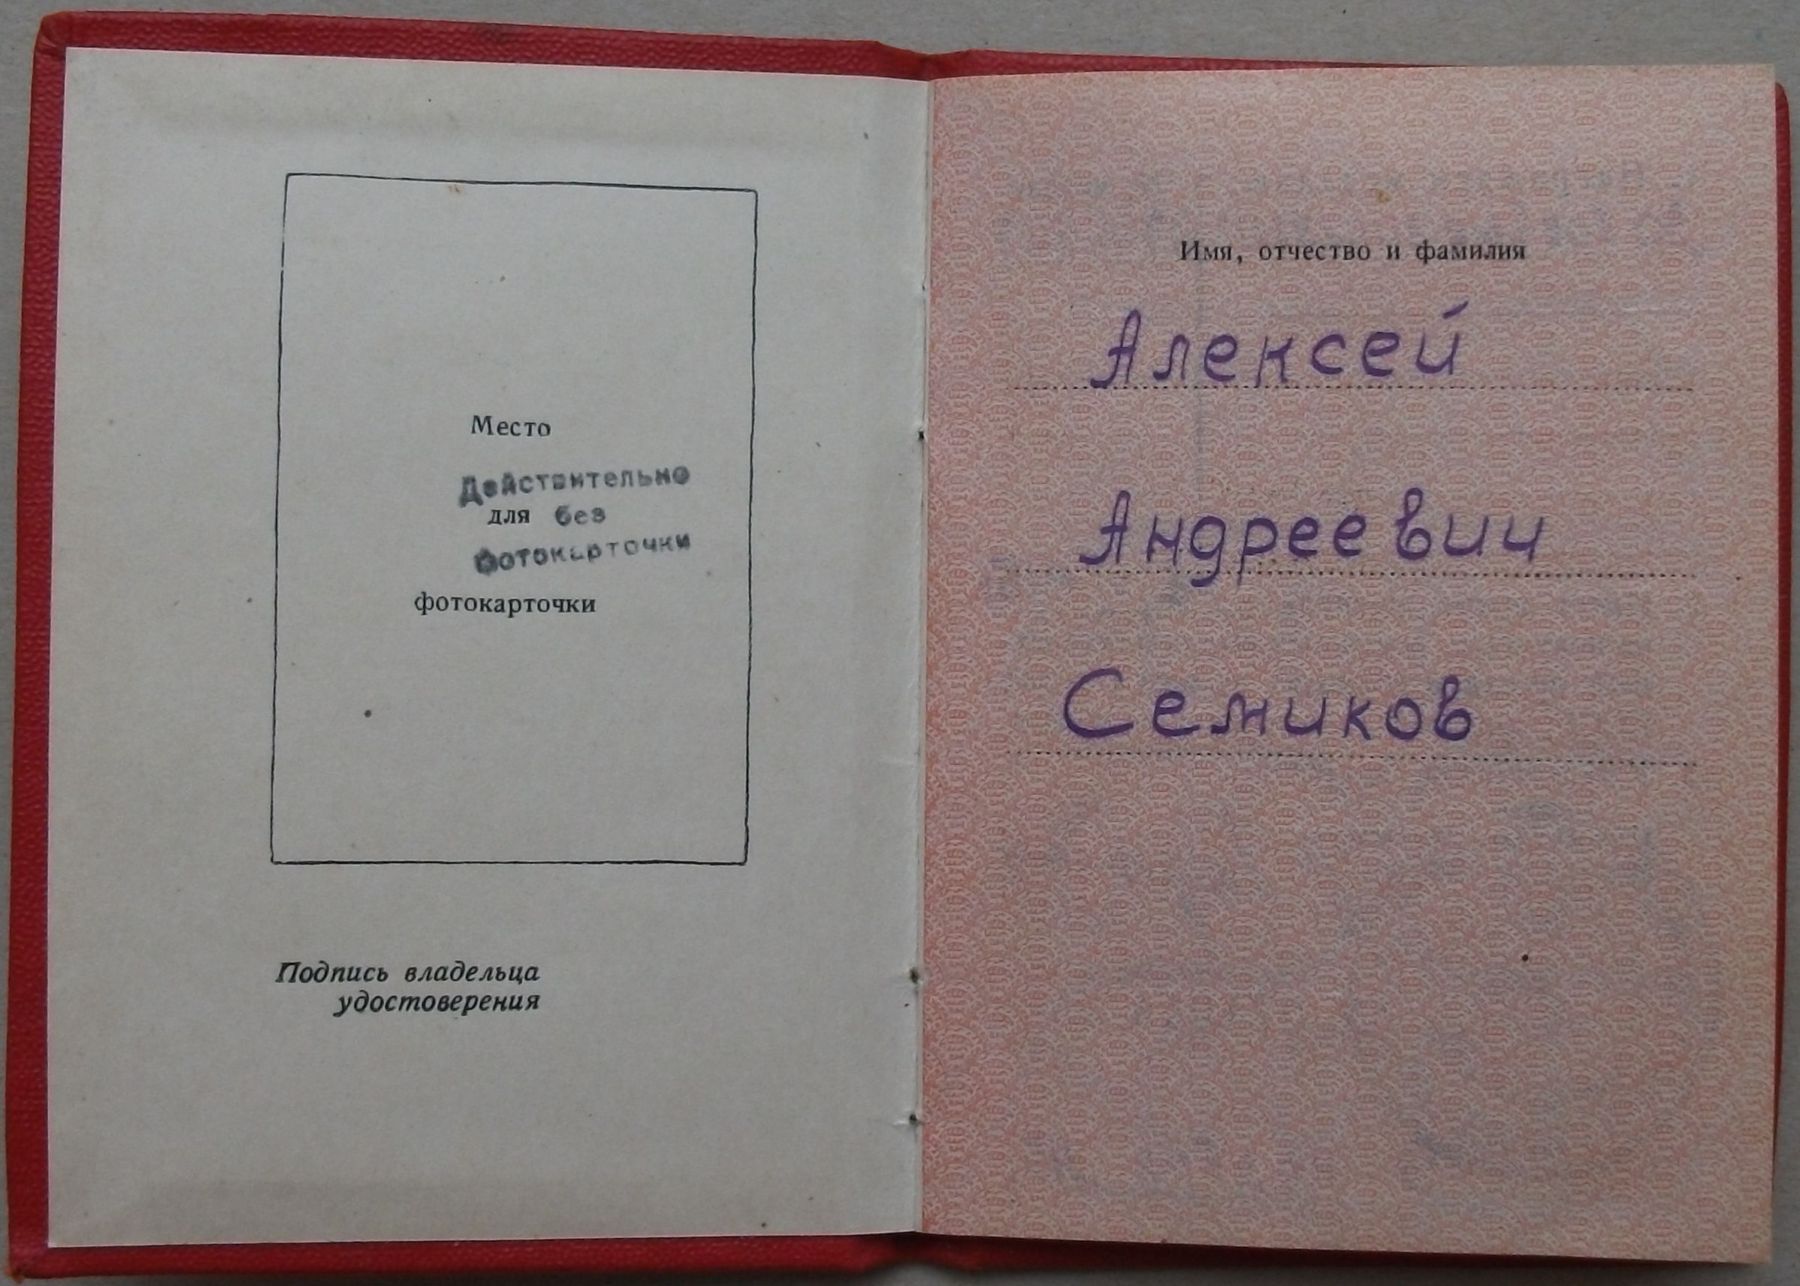 Место
Действительно
для без
фотокарточки
фотокарточки
Подпись владельца
удостоверения
Имя, отчество и фамилия
Алексей
Андреевич
Семиков